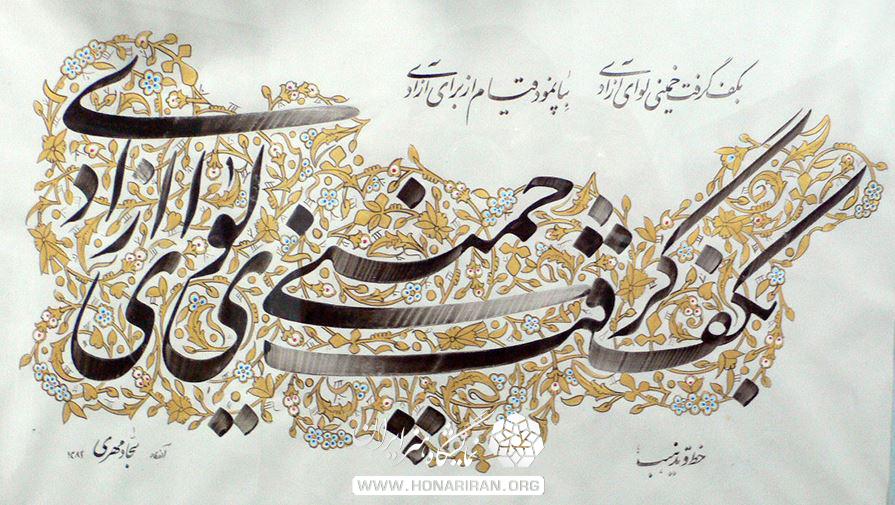 بکف گرفت خمینی لوای آزادی
بپا نمود قیام از برای آزادی
بکف گرفت خمینی لوای آزادی
خط و تذهیب
سجاد مهری
۱۳۸۲
نمایشگاه هنر ایران
WWW.HONARIRAN.ORG